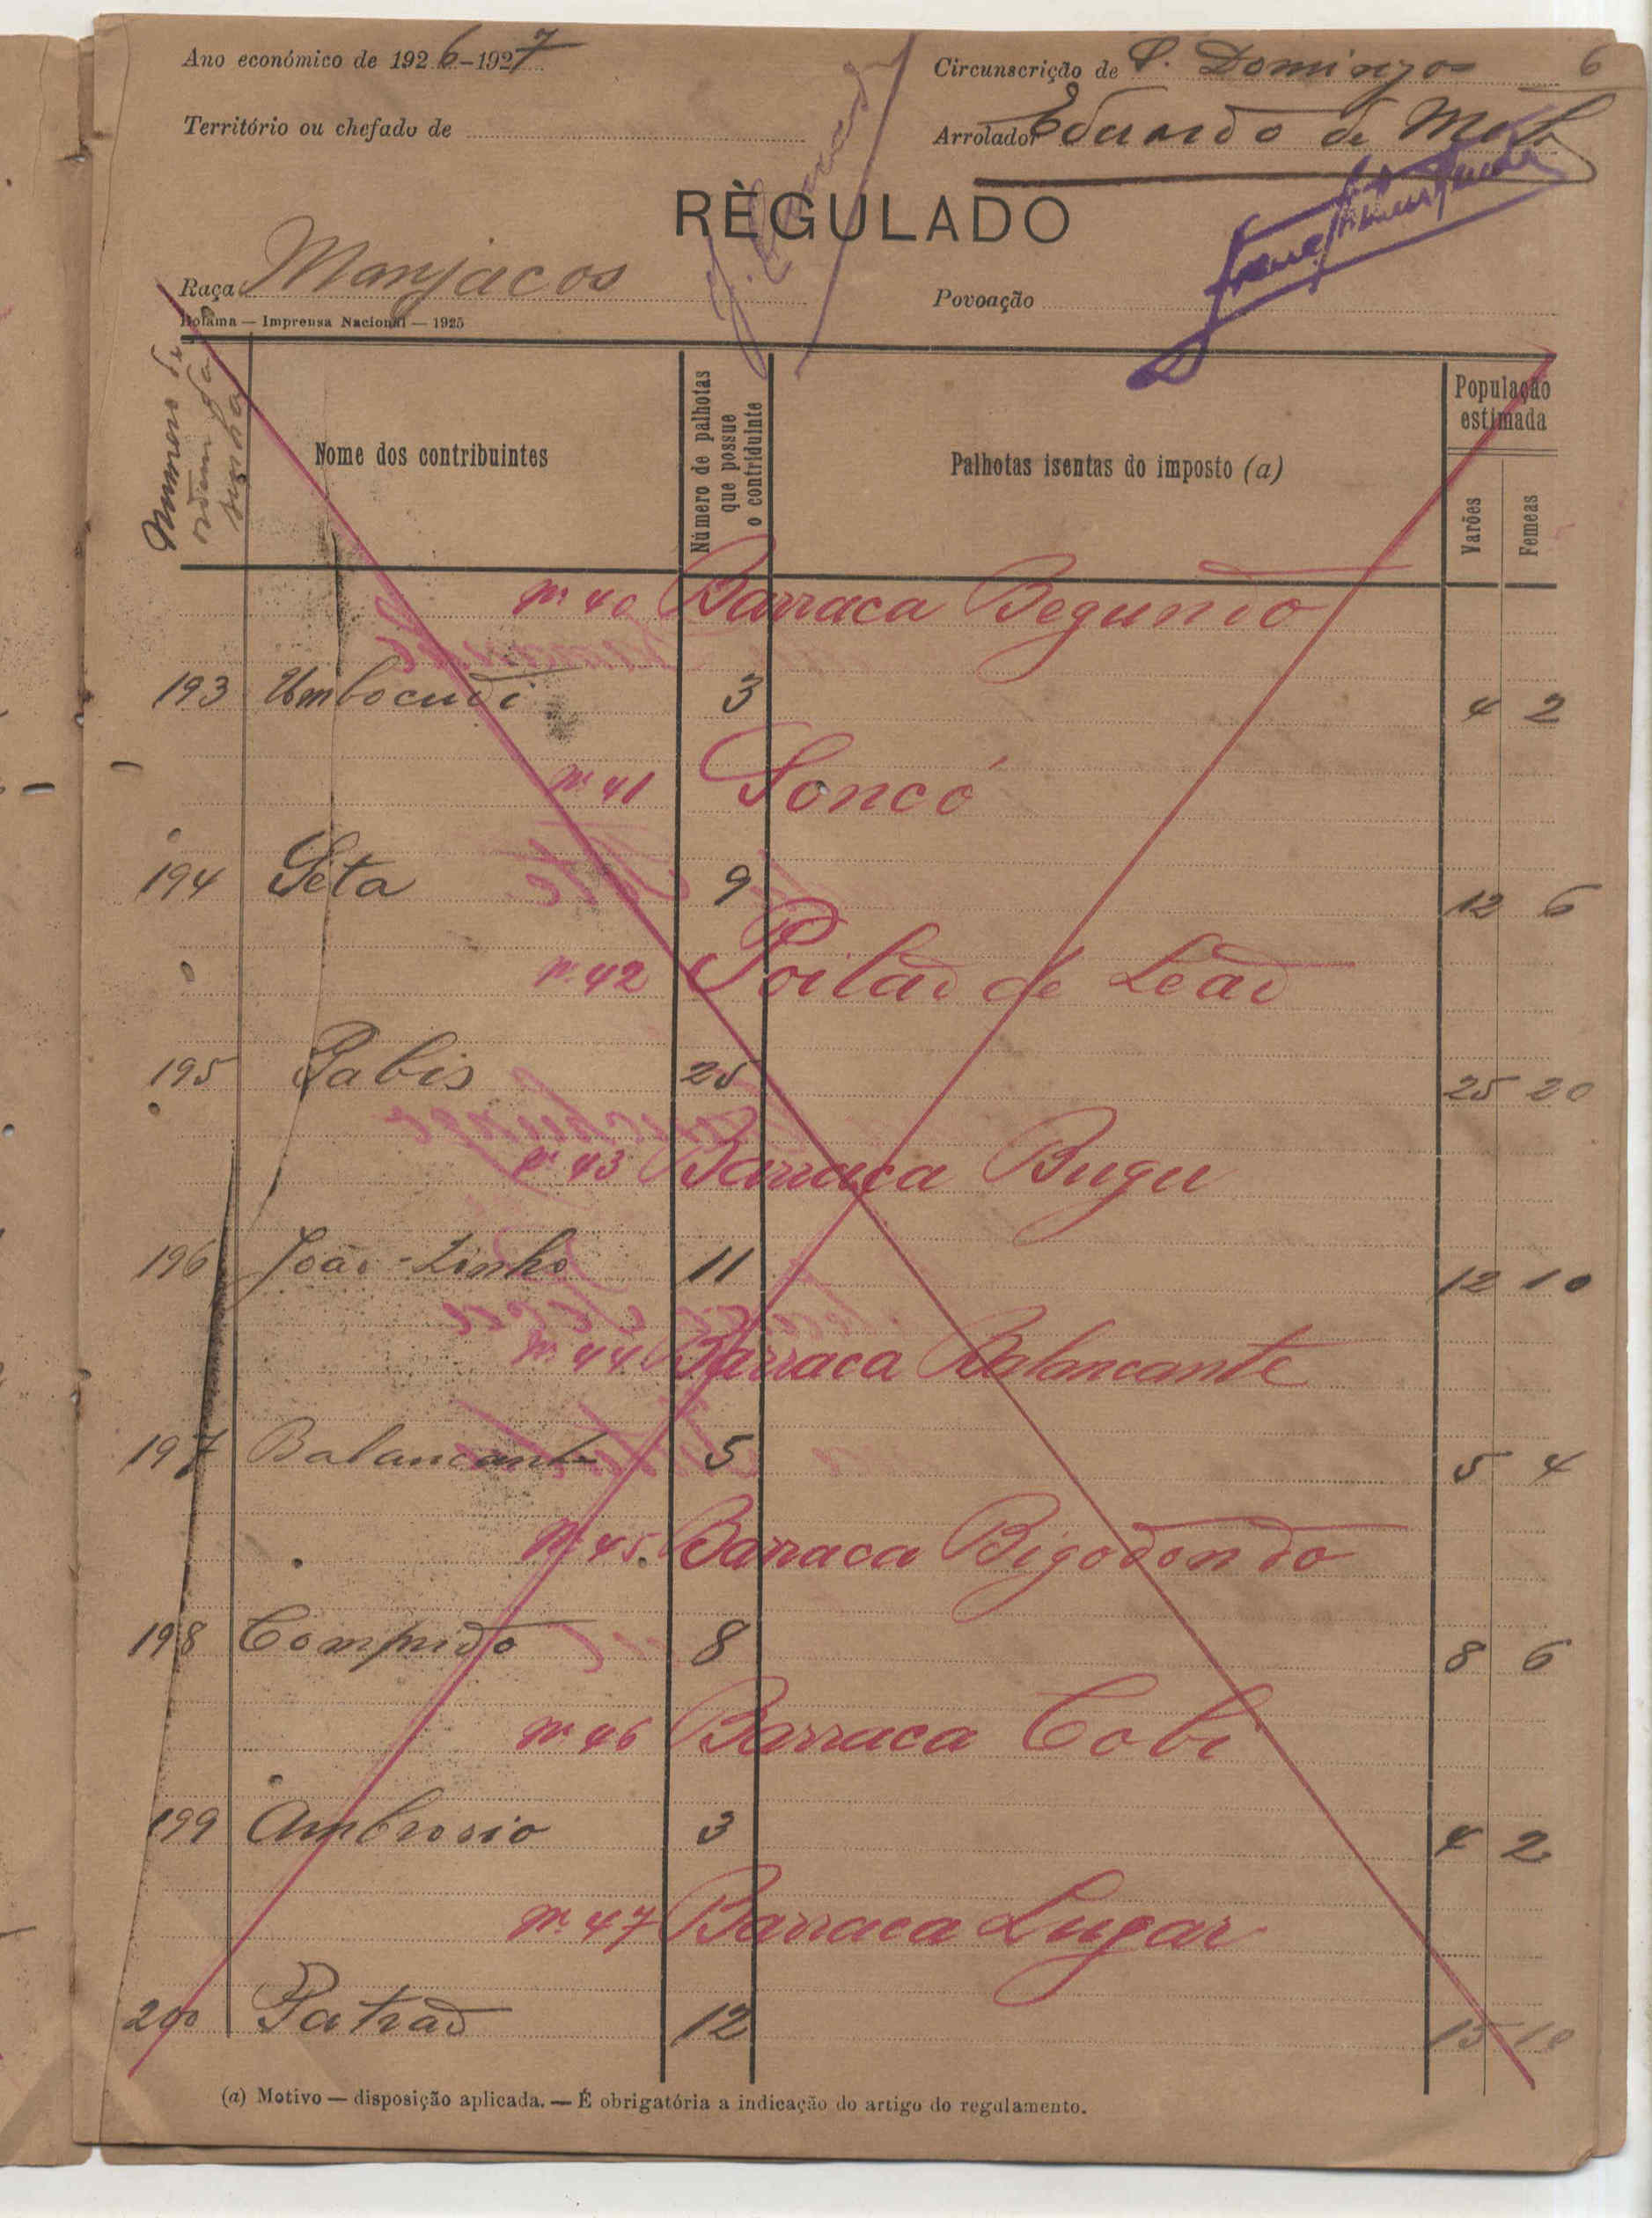 Ano económico de 1926-1927
Circunscrição de S. Domingos 6
Território ou chefado de
Arrolador Eduardo de
RÈGULADO
Raça Manjacos
Povoação
Bolama — Imprensa Nacional — 1925
Numeros de
Nome dos contribuintes
Número de palhotas que possue o contriduinte
Palhotas isentas do imposto (a)
População estimada
Varões
Femeas
Nº 40 Barraca Begundo
193 Umbocudi 3 4 2
Nº 41 Soncó
194 Séta 9 12 6
Nº 42 Poilão de Leão
195 Pabis 25 25 20
Nº 43 Barraca Bugu
196 João-Zinho 11 12 10
Nº 44 Barraca Balancante
197 Balancante 5 5 4
Nº 45 Barraca Bigodondo
198 Comprido 8 8 6
Nº 46 Barraca Cobi
199 Ambrosio 3 4 2
Nº 47 Barraca Lugar
200 Patrão 12 15 10
(a) Motivo — disposição aplicada. — É obrigatória a indicação do artigo do regulamento.